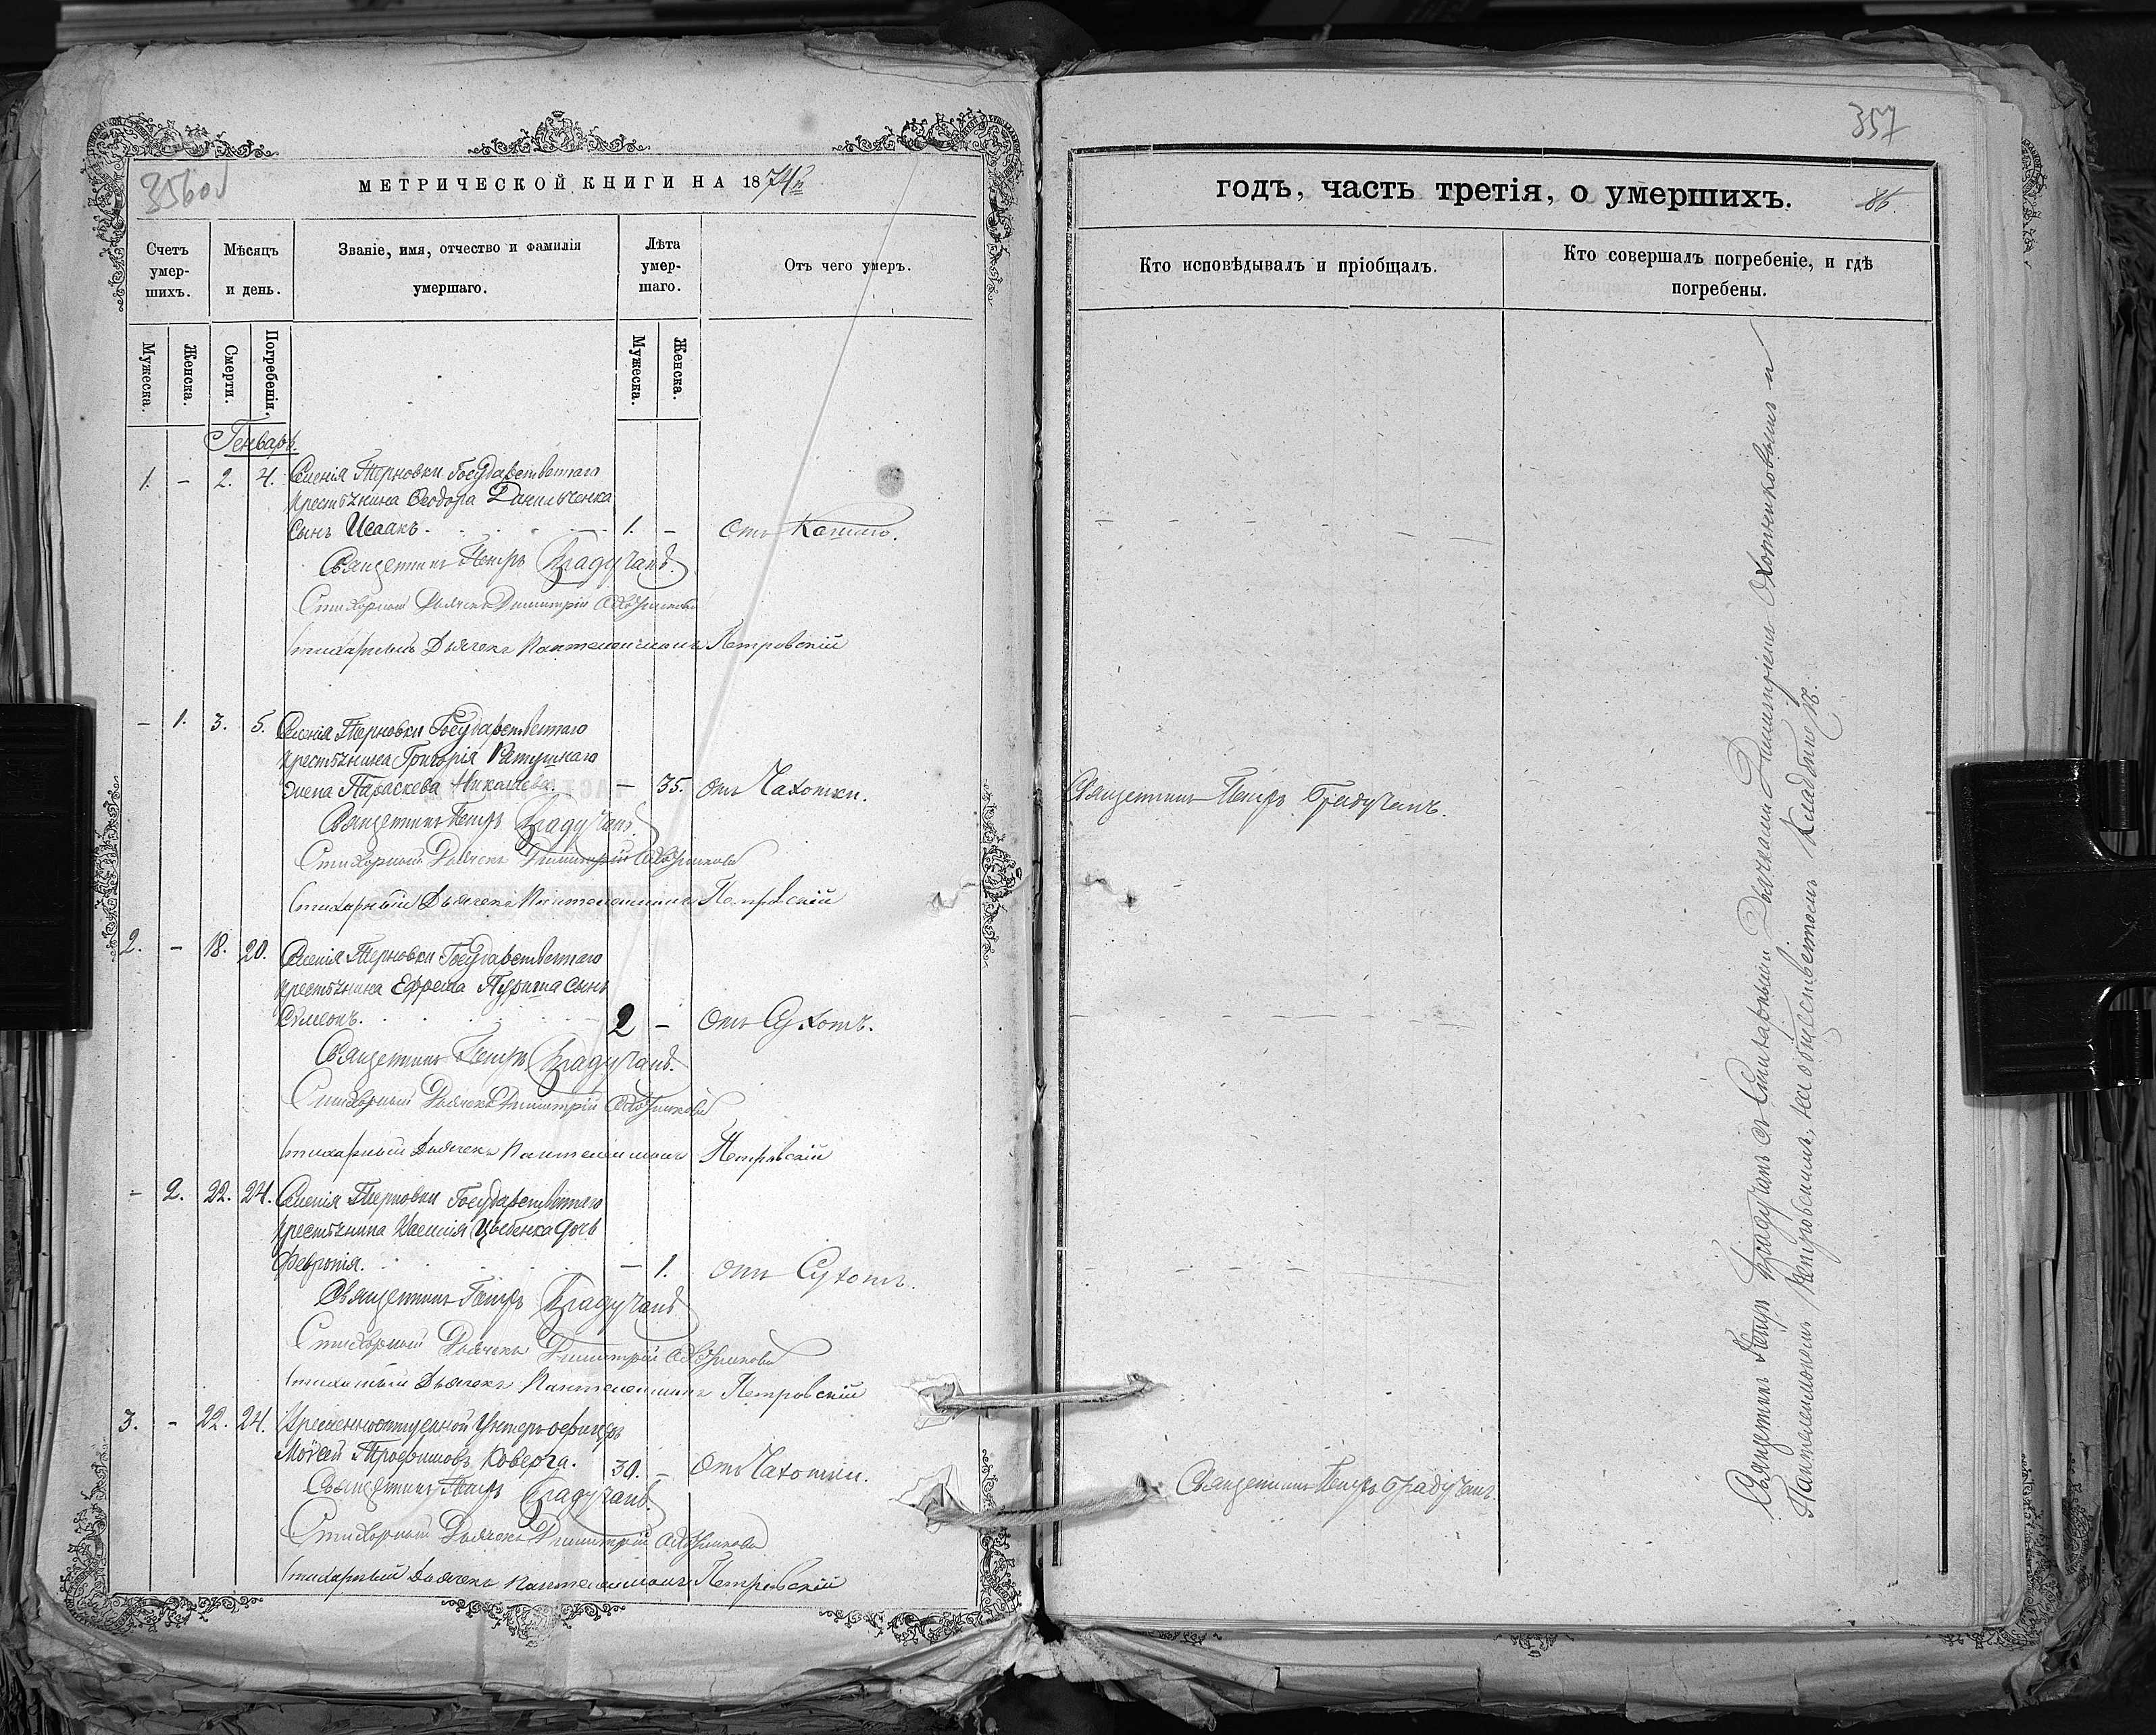 356об
МЕТРИЧЕСКОЙ КНИГИ НА 1874й
Счетъ умер-шихъ.
Мѣсяцъ и день.
Званіе, имя, отчество и фамилія умершаго.
Лѣта умер-шаго.
Отъ чего умеръ.
Мужеска.
Женска.
Смерти.
Погребенія.
Мужеска.
Женска.
Генварь.
1. - 2. 4. Селенія Терновки Государственнаго
крестьянина Ѳеодора Данильченка
Сынъ Исаакъ. 1. - Отъ Кашлю.
Священникъ Петръ Градучанъ.
Стихарный Дьячекъ Димитрій
Стихарный Дьячекъ Пантелеимонъ Петровскій
- 1. 3. 5. Селенія Терновки Государственнаго
крестьянина Григорія Ратушнаго
жена Параскева Николаева. - 35. Отъ Чахотки.
Священникъ Петръ Градучанъ.
Стихарный Дьячекъ Димитрій
Стихарный Дьячекъ Пантелеимонъ Петровскій
2. - 18. 20. Селенія Терновки Государственнаго
крестьянина Ефрема Пуриша сынъ
Симеонъ. 2 - Отъ Сухотъ.
Священникъ Петръ Градучанъ.
Стихарный Дьячекъ Димитрій
Стихарный Дьячекъ Пантелеимонъ Петровскій
- 2. 22. 24. Селенія Терновки Государственнаго
крестьянина Цыбенка дочь
Февронія. - 1. Отъ Сухотъ.
Священникъ Петръ Градучанъ
Стихарный Дьячекъ Димитрій
Стихарный Дьячекъ Пантелеимонъ Петровскій
3. - 22. 24. Временноотпускной Унтеръ-офицеръ
Моѵсей Трофимовъ Коверга. 30. - Отъ Чахотки.
Священникъ Петръ Градучанъ.
Стихарный Дьячекъ Димитрій
Стихарный Дьячекъ Пантелеимонъ Петровскій
357
годъ, часть третія, о умершихъ.
86.
Кто исповѣдывалъ и пріобщалъ.
Кто совершалъ погребеніе, и гдѣ погребены.
Священникъ Петръ Градучанъ.
Священникъ Петръ Градучанъ.
Священникъ Петръ Градучанъ съ Стихарными Дьячками Димитріемъ Охотниковымъ и
Пантелеимономъ Петровскимъ, на общественномъ кладбищѣ.